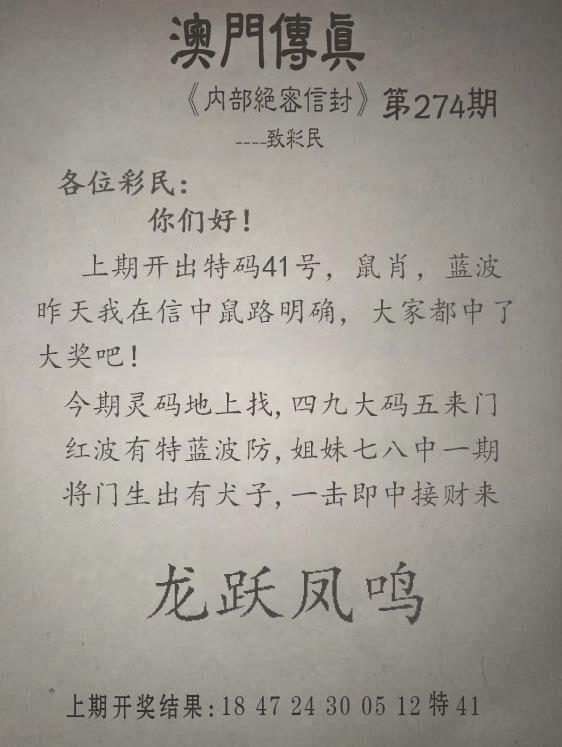 澳門傳真
《内部絕密信封》第274期
----致彩民
各位彩民：
你们好！
上期开出特码41号，鼠肖，蓝波
昨天我在信中鼠路明确，大家都中了
大奖吧！
今期灵码地上找,四九大码五来门
红波有特蓝波防,姐妹七八中一期
将门生出有犬子,一击即中接财来
龙跃凤鸣
上期开奖结果:18 47 24 30 05 12特41